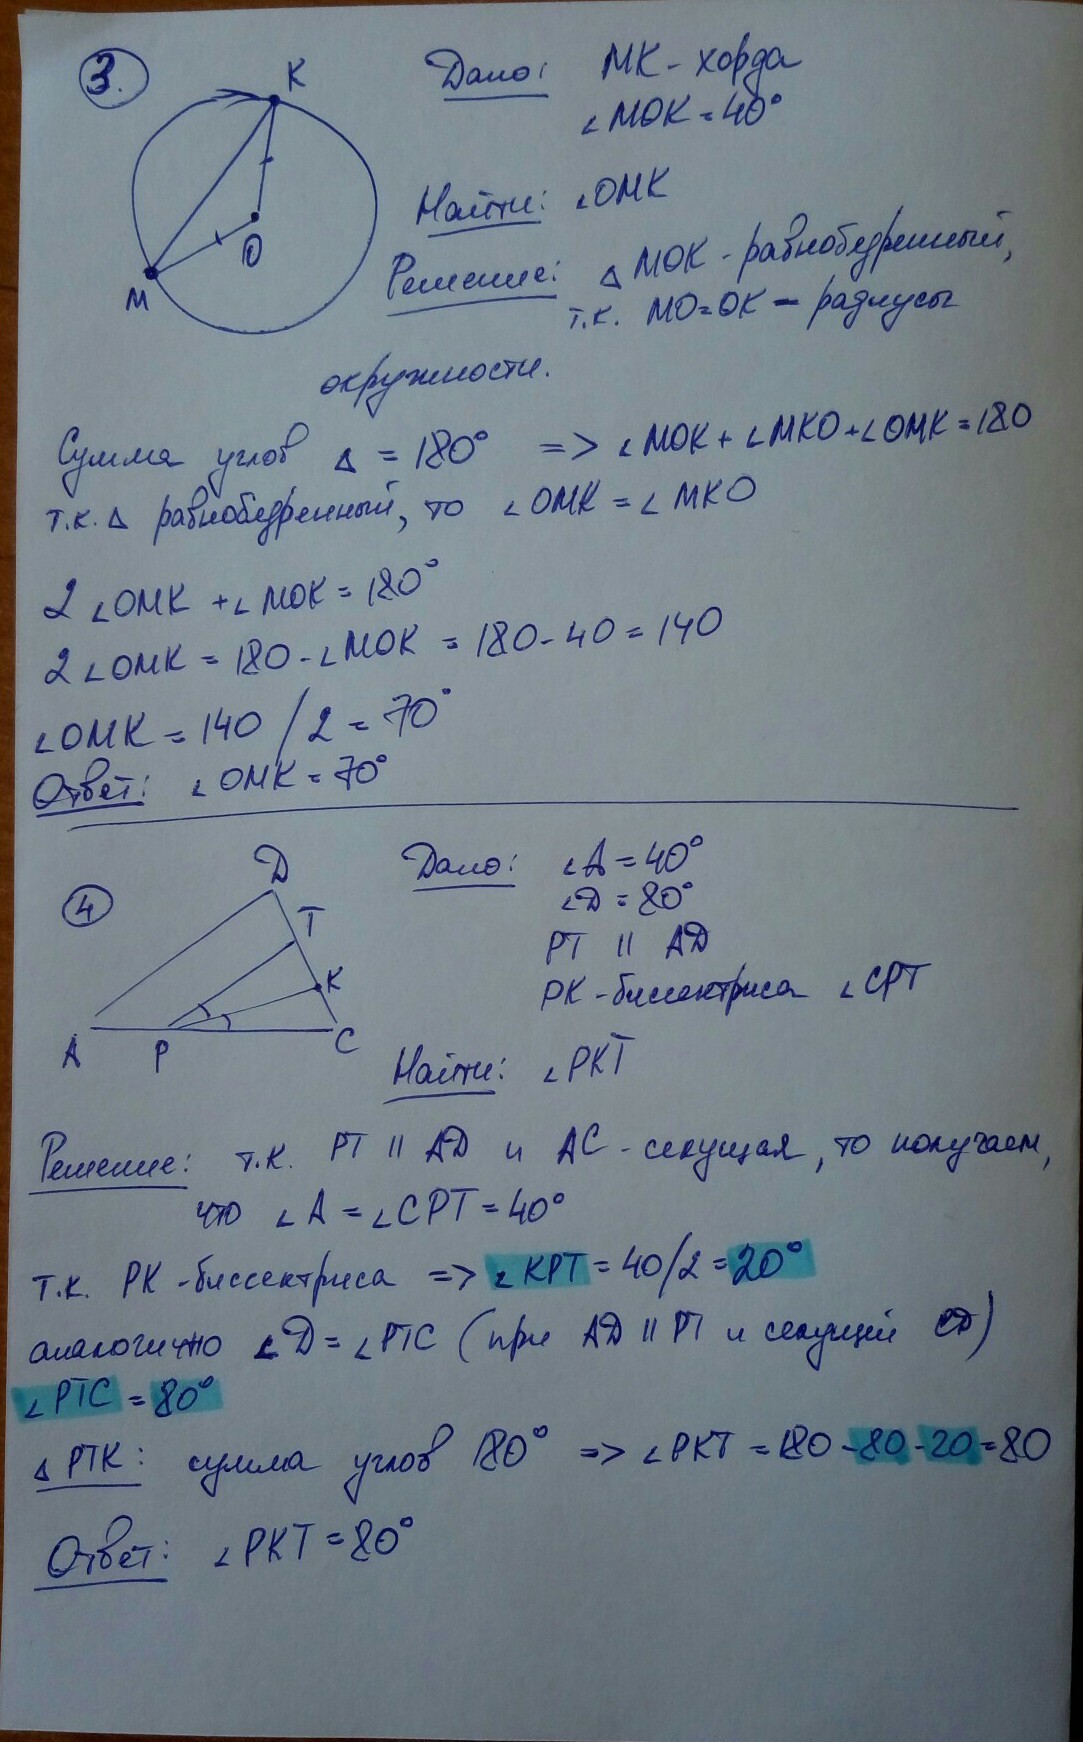 3.
K
M
O
Дано: МК - хорда
∠МОК = 40°
Найти: ∠ОМК
Решение: △ МОК - равнобедренный,
т.к. МО=ОК - радиусы
окружности.
Сумма углов △ = 180° => ∠МОК + ∠МКО + ∠ОМК = 180
т.к. △ равнобедренный, то ∠ОМК = ∠МКО
2 ∠ОМК + ∠МОК = 180°
2 ∠ОМК = 180 - ∠МОК = 180 - 40 = 140
∠ОМК = 140 / 2 = 70°
Ответ: ∠ОМК = 70°
4
D
T
K
A
P
C
Дано: ∠A = 40°
∠D = 80°
PT || AD
PK - биссектриса ∠CPT
Найти: ∠PKT
Решение: т.к. PT || AD и AC - секущая, то получаем,
что ∠A = ∠CPT = 40°
т.к. PK - биссектриса => ∠KPT = 40/2 = 20°
аналогично ∠D = ∠PTC (при AD || PT и секущей CD)
∠PTC = 80°
△ PTK: сумма углов 180° => ∠PKT = 180 - 80 - 20 = 80
Ответ: ∠PKT = 80°